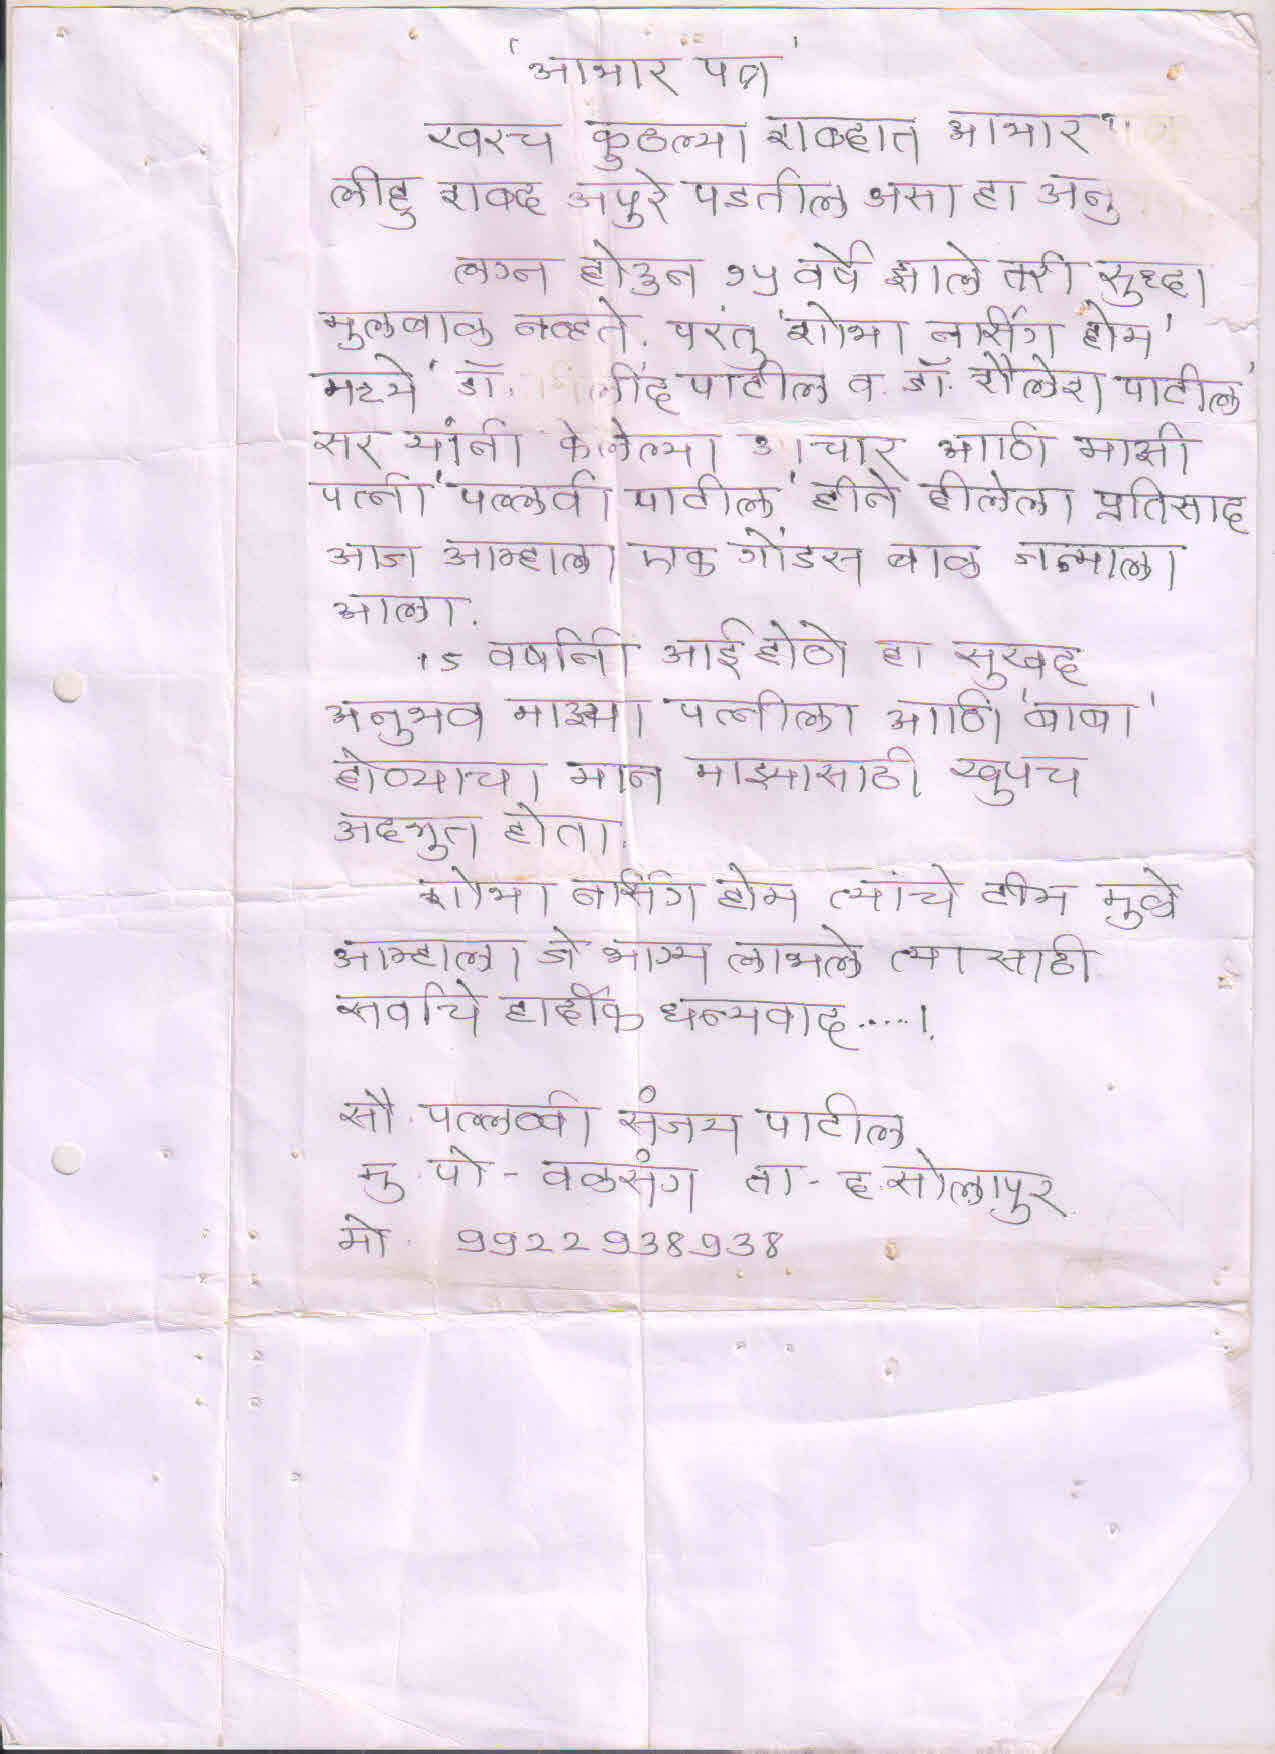 'आभार पत्र'
खरच कुठल्या शब्दात आभार
लीहु शब्द अपुरे पडतील असा हा अनु
लग्न होउन १५ वर्षे झाले तरी सुध्दा
मुलबाळ नव्हते. परंतु 'शोभा नर्सिंग होम'
मध्ये 'डॉ. लींद पाटील व. डॉ. शैलेश पाटील'
सर यांनी केलेल्या उपचार आणि माझी
पत्नी 'पल्लवी पाटील' हीने दीलेला प्रतिसाद
आज आम्हाला एक गोंडस बाळ जन्माला
आला.
15 वर्षानी आई होणे हा सुखद
अनुभव माझ्या पत्नीला आणि 'बाबा'
होण्याचा मान माझ्यासाठी खुपच
अदभुत होता.
शोभा नर्सिंग होम त्यांचे टीम मुळे
आम्हाला जे भाग्य लाभले त्या साठी
सर्वांचे हार्दीक धन्यवाद.....!.
सौ. पल्लवी संजय पाटील
मु. पो - वळसंग ता - द. सोलापुर.
मो. 9922938938